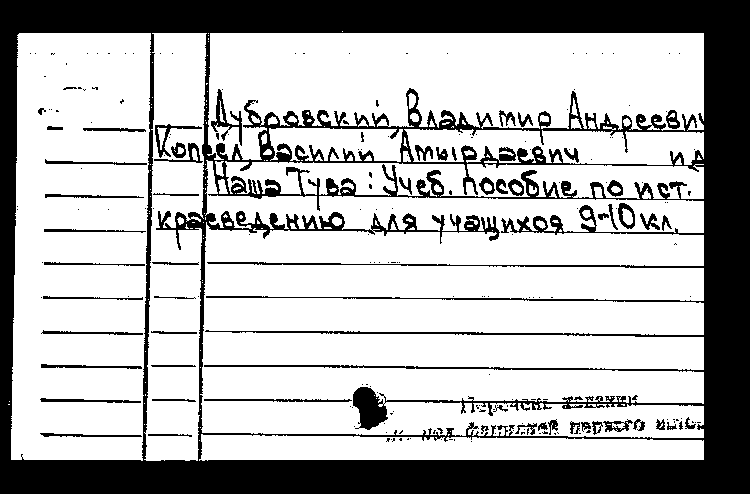 Дубровский Владимир Андреевич
Копеёл Василий Амырдаевич ид
Наша Тува: Учеб. пособие по ист.
краеведению для учащихся 9-10 кл.
Перечень издания
над фамилией первого